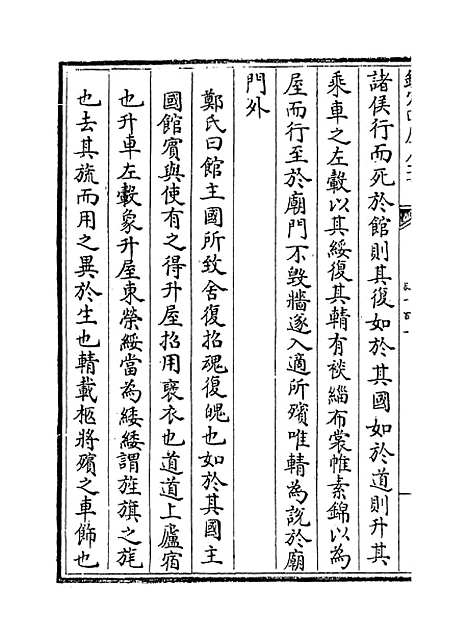 諸侯行而死於館則其復如於其國如於道則升其
乘車之左轂以其綏復其輤有裧緇布裳帷素錦以為
屋而行至於廟門不毁牆遂入適所殯唯輤為説於廟
門外
鄭氏曰館主國所致舍復招魂復魄也如於其國主
國館賓與使有之得升屋招用裹衣也道道上廬宿
也升車左轂象升屋東榮綏當為緌緌謂旌旗之旄
也去其旒而用之異於生也輤載柩將殯之車飾也